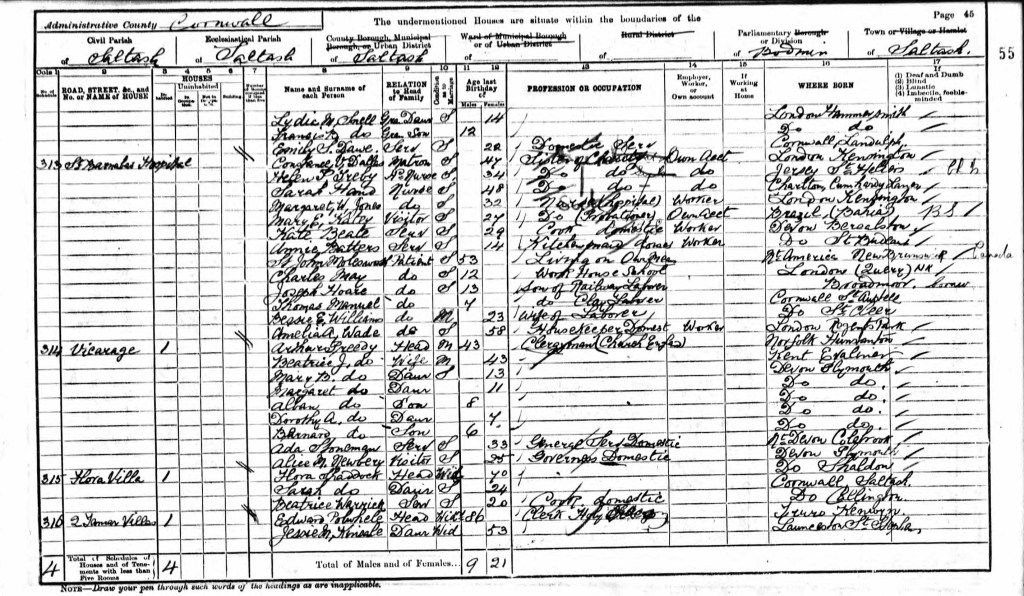 Administrative County Cornwall The undermentioned Houses are situate within the boundaries of the Page 45
Civil Parish Ecclesiastical Parish County Borough, Municipal Borough, or Urban District Ward of Municipal Borough or of Urban District Rural District Parliamentary Borough or Division Town or Village or Hamlet
of Saltash of Saltash of Saltash of of of Bodmin of Saltash. 55
Cols 1 2 3 4 5 6 7 8 9 10 11 12 13 14 15 16 17
ROAD, STREET, &c., and No. or NAME of HOUSE HOUSES Uninhabited Building Name and Surname of each Person RELATION to Head of Family Condition as to Marriage Age last Birthday of Males Females PROFESSION OR OCCUPATION Employer, Worker, or Own account If Working at Home WHERE BORN (1) Deaf and Dumb (2) Blind (3) Lunatic (4) Imbecile, feeble-minded
Lydia M. Snell Gra Daur 14 London Hammersmith
Francis do Gra Son 12 Do do
Emily S. Dawe Serv S 22 Domestic Serv Cornwall Landulph
313 St Barnabas Hospital Constance Matron S 47 Sister of Charity Own Acct London Kensington
Helen Nurse S 34 Do do do Jersey St Heliers
Sarah Hand Nurse S 48 Do do do Charlton
Margaret W. Jones do S 32 Nurse (Hospital) Worker London Kensington
Mary E. Visitor S 27 Do (Probationer) Own Acct Brazil (Bahia) B.S.
Kate Beale Serv S 29 Cook domestic Worker Devon Beralston
Annie Serv S 14 Kitchenmaid domes Worker Do St Budeaux
St John Molesworth Patient S 53 Living on Own Means N. America New Brunswick Canada
Charles May do S 12 Work House School London
Joseph Hoare do S 13 Son of Railway Laborer Broadmoor
Thomas Manuel do 7 do Clay Laborer Cornwall St Austell
Bessie E. Williams do M 23 Wife of Laborer Do St Cleer
Amelia A. Wade do S 58 Housekeeper Domest Worker London Regents Park
314 Vicarage 1 Arthur Preedy Head M 43 Clergyman (Church Engld) Norfolk Hunstanton
Beatrice J. do Wife M 43 Kent
Mary B. do Daur S 13 Devon Plymouth
Margaret do Daur 11 Do do.
Alban do Son 8 Do do.
Dorothy A. do Daur 7 Do do.
Barnard do Son 6 Do do.
Ada Stoneman Serv S 33 General Serv Domestic N. Devon Colebrook
Alice M. Newbery Visitor S 25 Governess Domestic Devon Plymouth
315 Flora Villa 1 Flora Head Wid 70 Do Shaldon
Sarah do Daur S 24 Cornwall Saltash
Beatrice Warrick Serv S 20 Cook domestic Do Callington
316 2 Tamar Villas 1 Edward Polwhele Head Wid 86 Clerk Truro Kenwyn
Jessie M. Daur Wid 53 Launceston St Stephens
4 Total of Schedules of Houses and of Tenements with less than Five Rooms 4 Total of Males and of Females... 9 21
NOTE—Draw your pen through such words of the headings as are inapplicable.